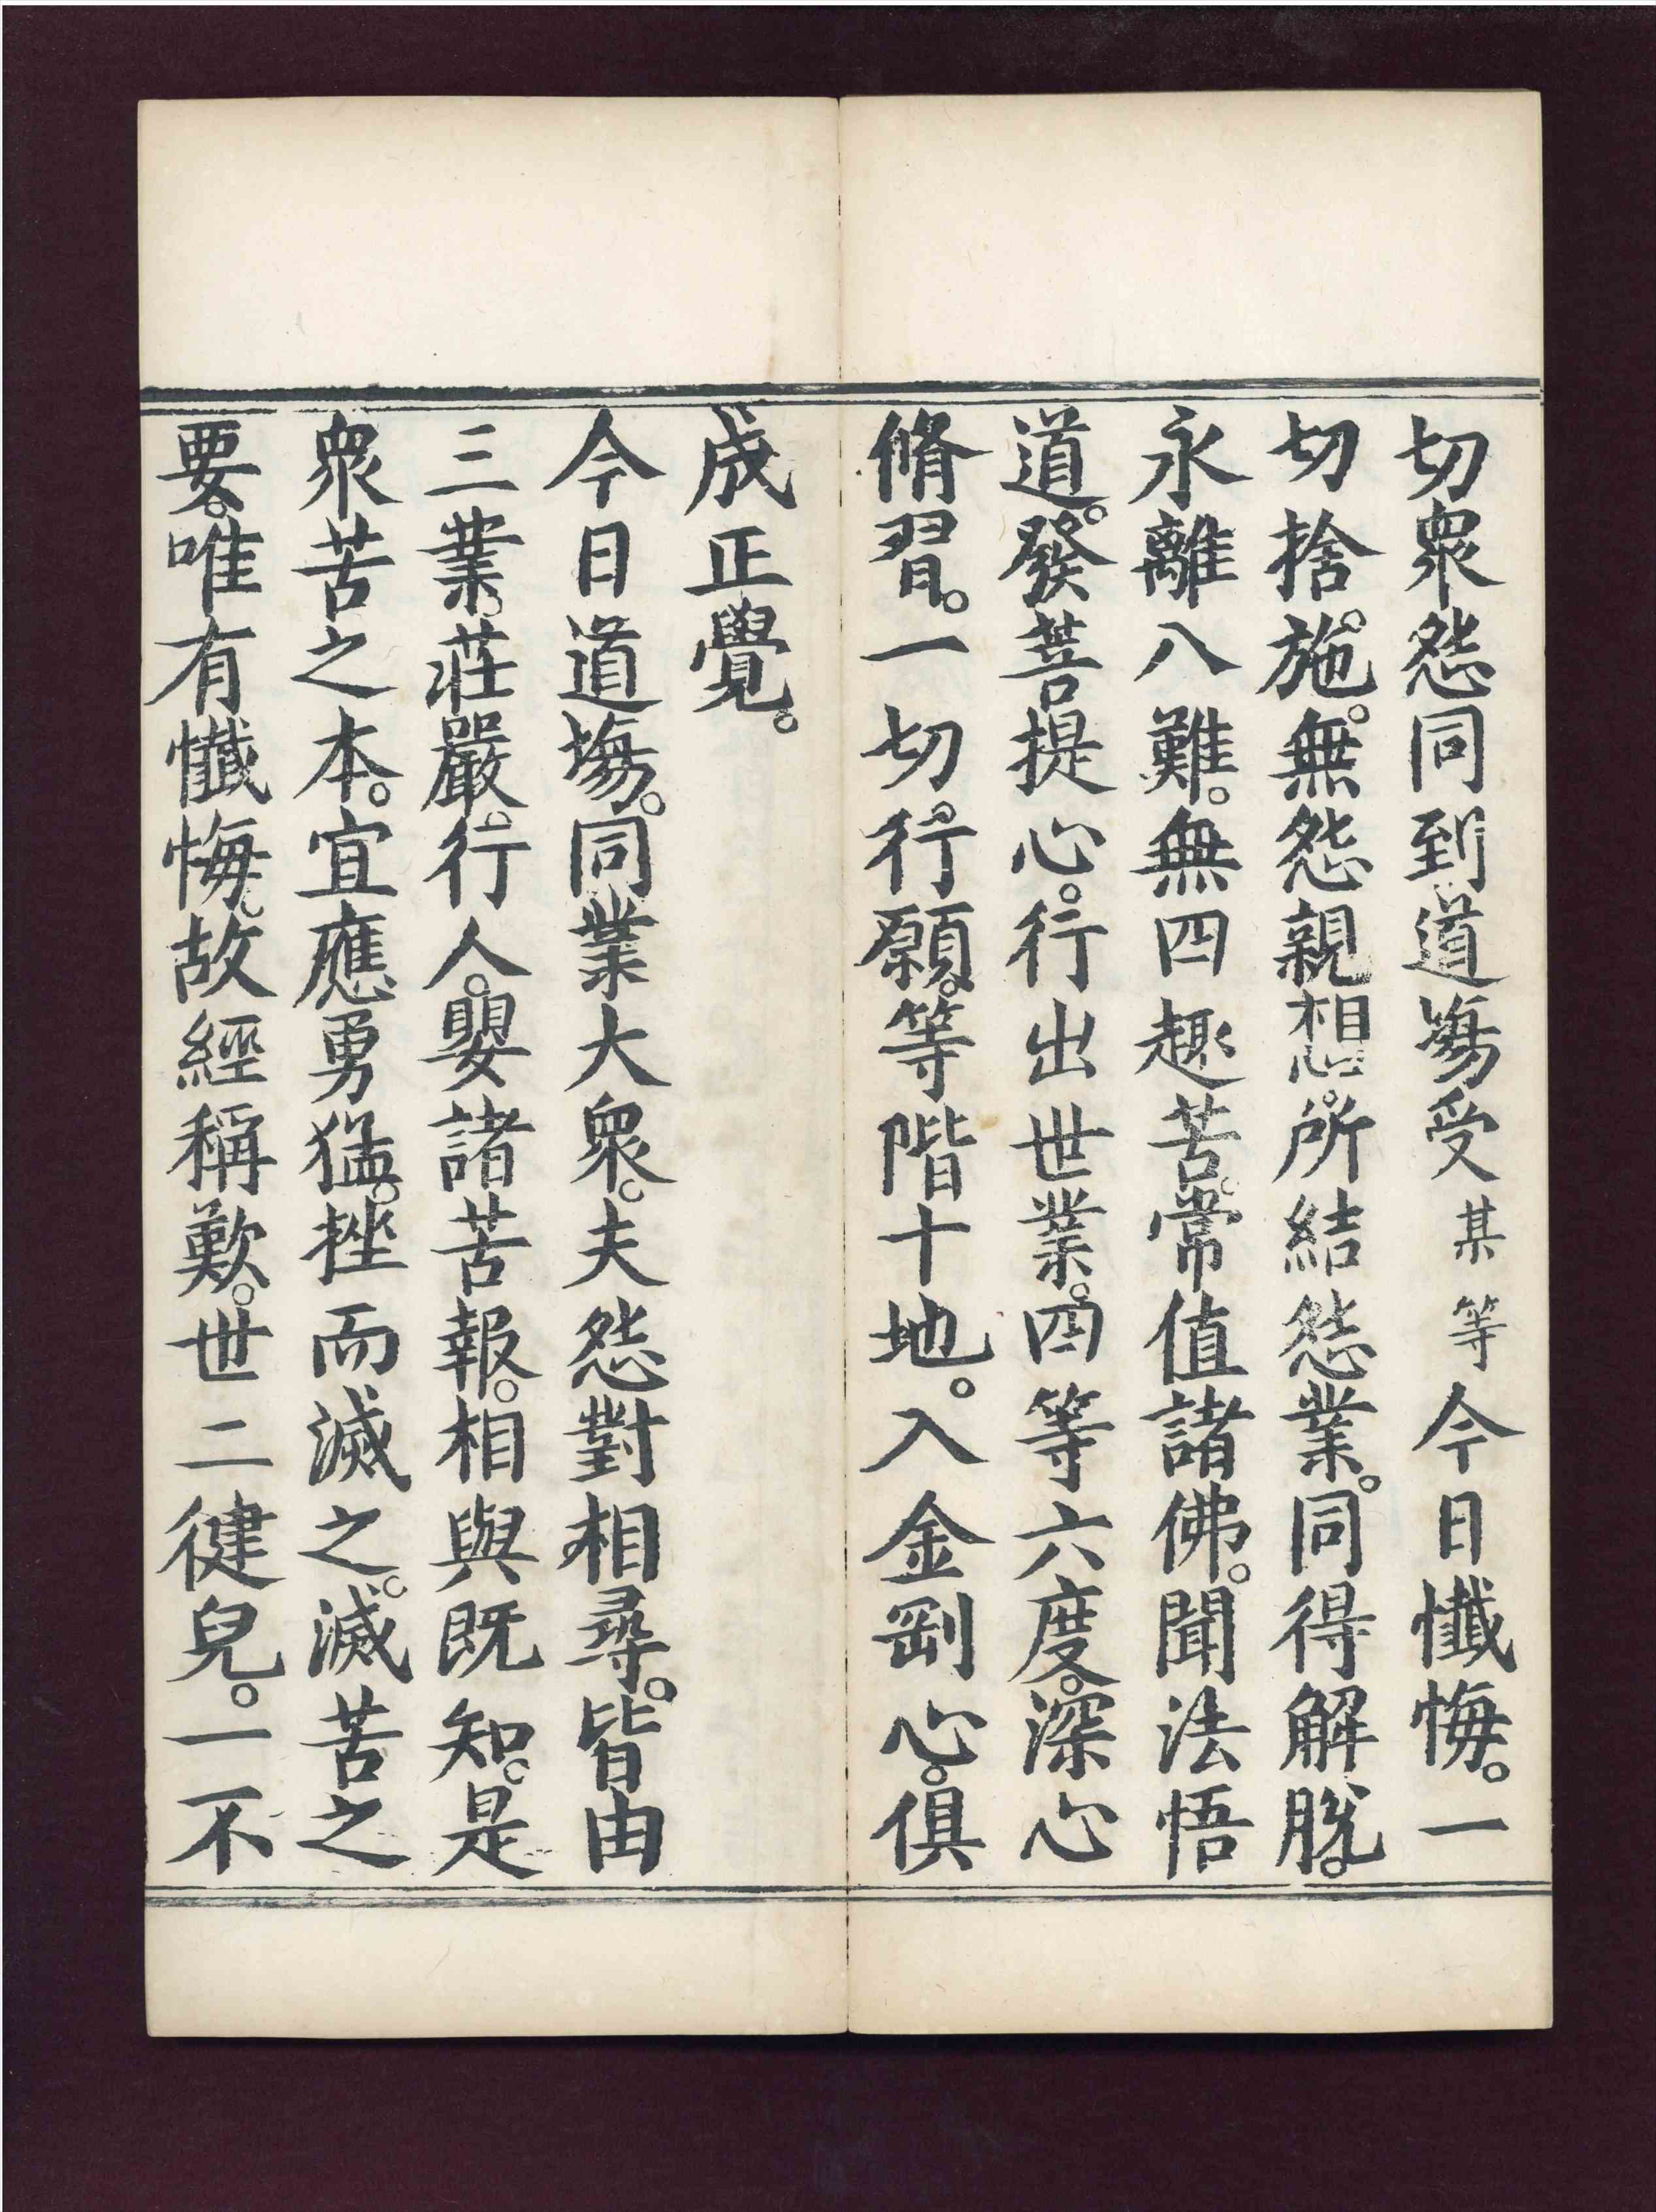 切衆怨同到道塲受某等今日懺悔。一
切捨施。無怨親想。所結怨業。同得解脫。
永離八難。無四趣苦。常值諸佛。聞法悟
道。發菩提心。行出世業。四等六度。深心
脩習。一切行願。等階十地。入金剛心。俱
成正覺。
今日道塲。同業大衆。夫怨對相尋。皆由
三業。莊嚴。行人。嬰諸苦報。相與既知。是
衆苦之本。宜應勇猛。挫而滅之。滅苦之
要。唯有懺悔。故經稱歎。世二健兒。一不